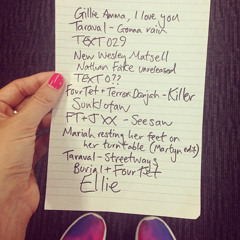 Gillie Amma, I love you
Taraval - Gonna rain
TEXT029
New Wesley Matsell
Nathan Fake unreleased
TEXT0??
FourTet + Terror Danjah - Killer
Sunklofaw
PT + JXX - Seesaw
Mariah resting her feet on
her turntable (Martyn edit)
Taraval - Streetways
Burial + Four Tet
Ellie